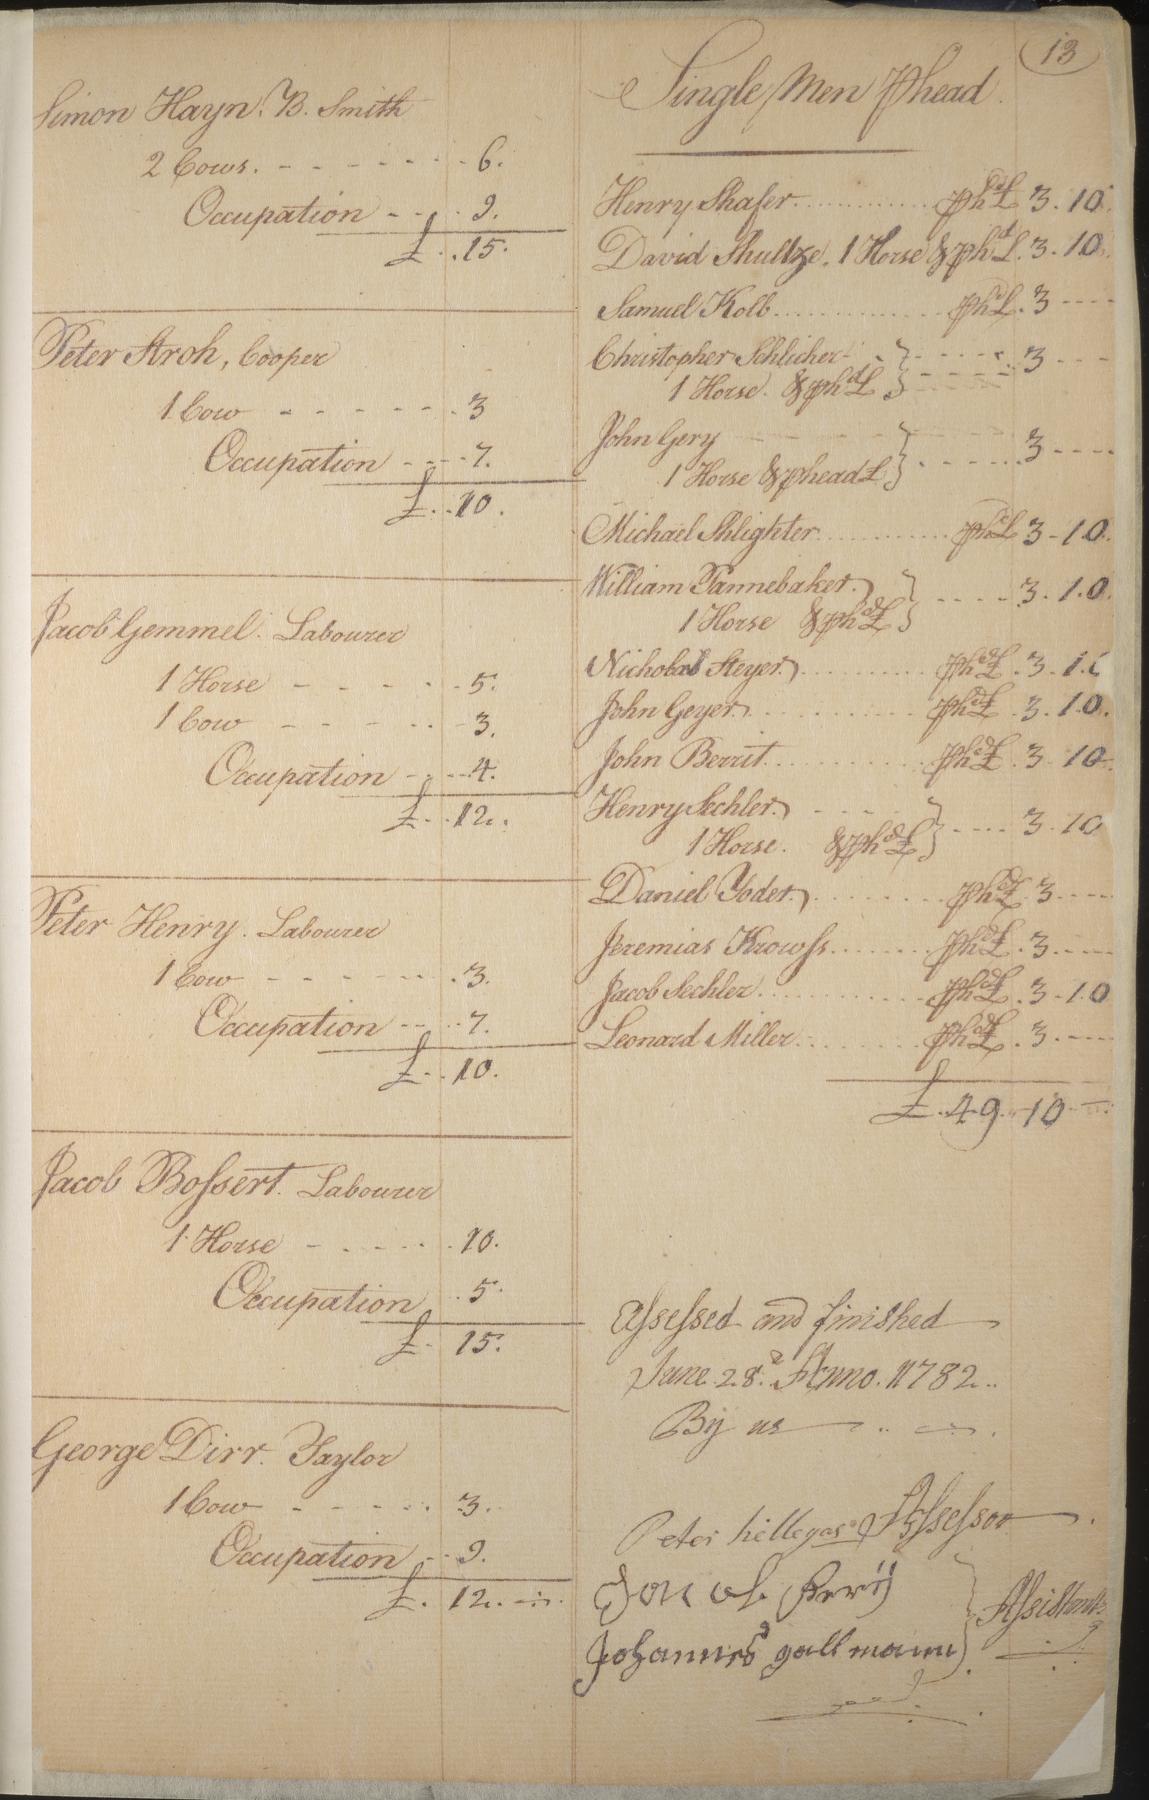 13
Simon Hayn. B. Smith
2 Cows. - - - - - - - 6.
Occupation - - - - 9.
£ . . 15.
Peter Stroh, Cooper
1 Cow - - - - - - . 3
Occupation - - - - 7.
£ . . 10.
Jacob Gemmel. Labourer
1 Horse - - - - - - 5.
1 Cow - - - - - - 3.
Occupation - - - - 4.
£ . . 12.
Peter Henry. Labourer
1 Cow - - - - - - . 3.
Occupation - - - - 7.
£ . . 10.
Jacob Boſsert. Labourer
1 Horse - - - - - . 10.
Occupation . 5.
£ . 15.
George Dirr. Taylor
1 Cow - - - - - . 3.
Occupation - - 9.
£ . 12.
Single Men Phead.
Henry Shafer ............ Phd £ 3 . 10.
David Shultze. 1 Horse & Phd £. 3 - 10.
Samuel Kolb ............ Phd £. 3 - - - -
Christopher Schlicher - . } - - - - - . 3 - - -
1 Horse. & Phd £
John Gery } . - - - - - 3 - - - -
1 Horse & Phead £
Michael Shlighter ......... Phd £ 3 - 10.
William Pannebaker. } - - - - 3 . 10.
1 Horse & Phd £
Nicholas Steyer. ......... Phd £ . 3 - 10
John Geyer. ......... Phd £ . 3 . 10.
John Berrit ......... Phd £ . 3 10
Henry Sechler. - - - - } - - - - 3 - 10
1 Horse. & Phd £
Daniel Yoder. ......... Phd £ . 3 - - - -
Jeremias Krowſs ......... Phd £ . 3 - - - -
Jacob Sechler ......... Phd £ . 3 - 10
Leonard Miller ......... Phd £ . 3 . - - - -
£ . 49 . 10
Aſseſsed and finished
June 28.d Anno. 1782..
By us
Peter hillegas Aſseſsor
Johannes gallmann } Aſsistants